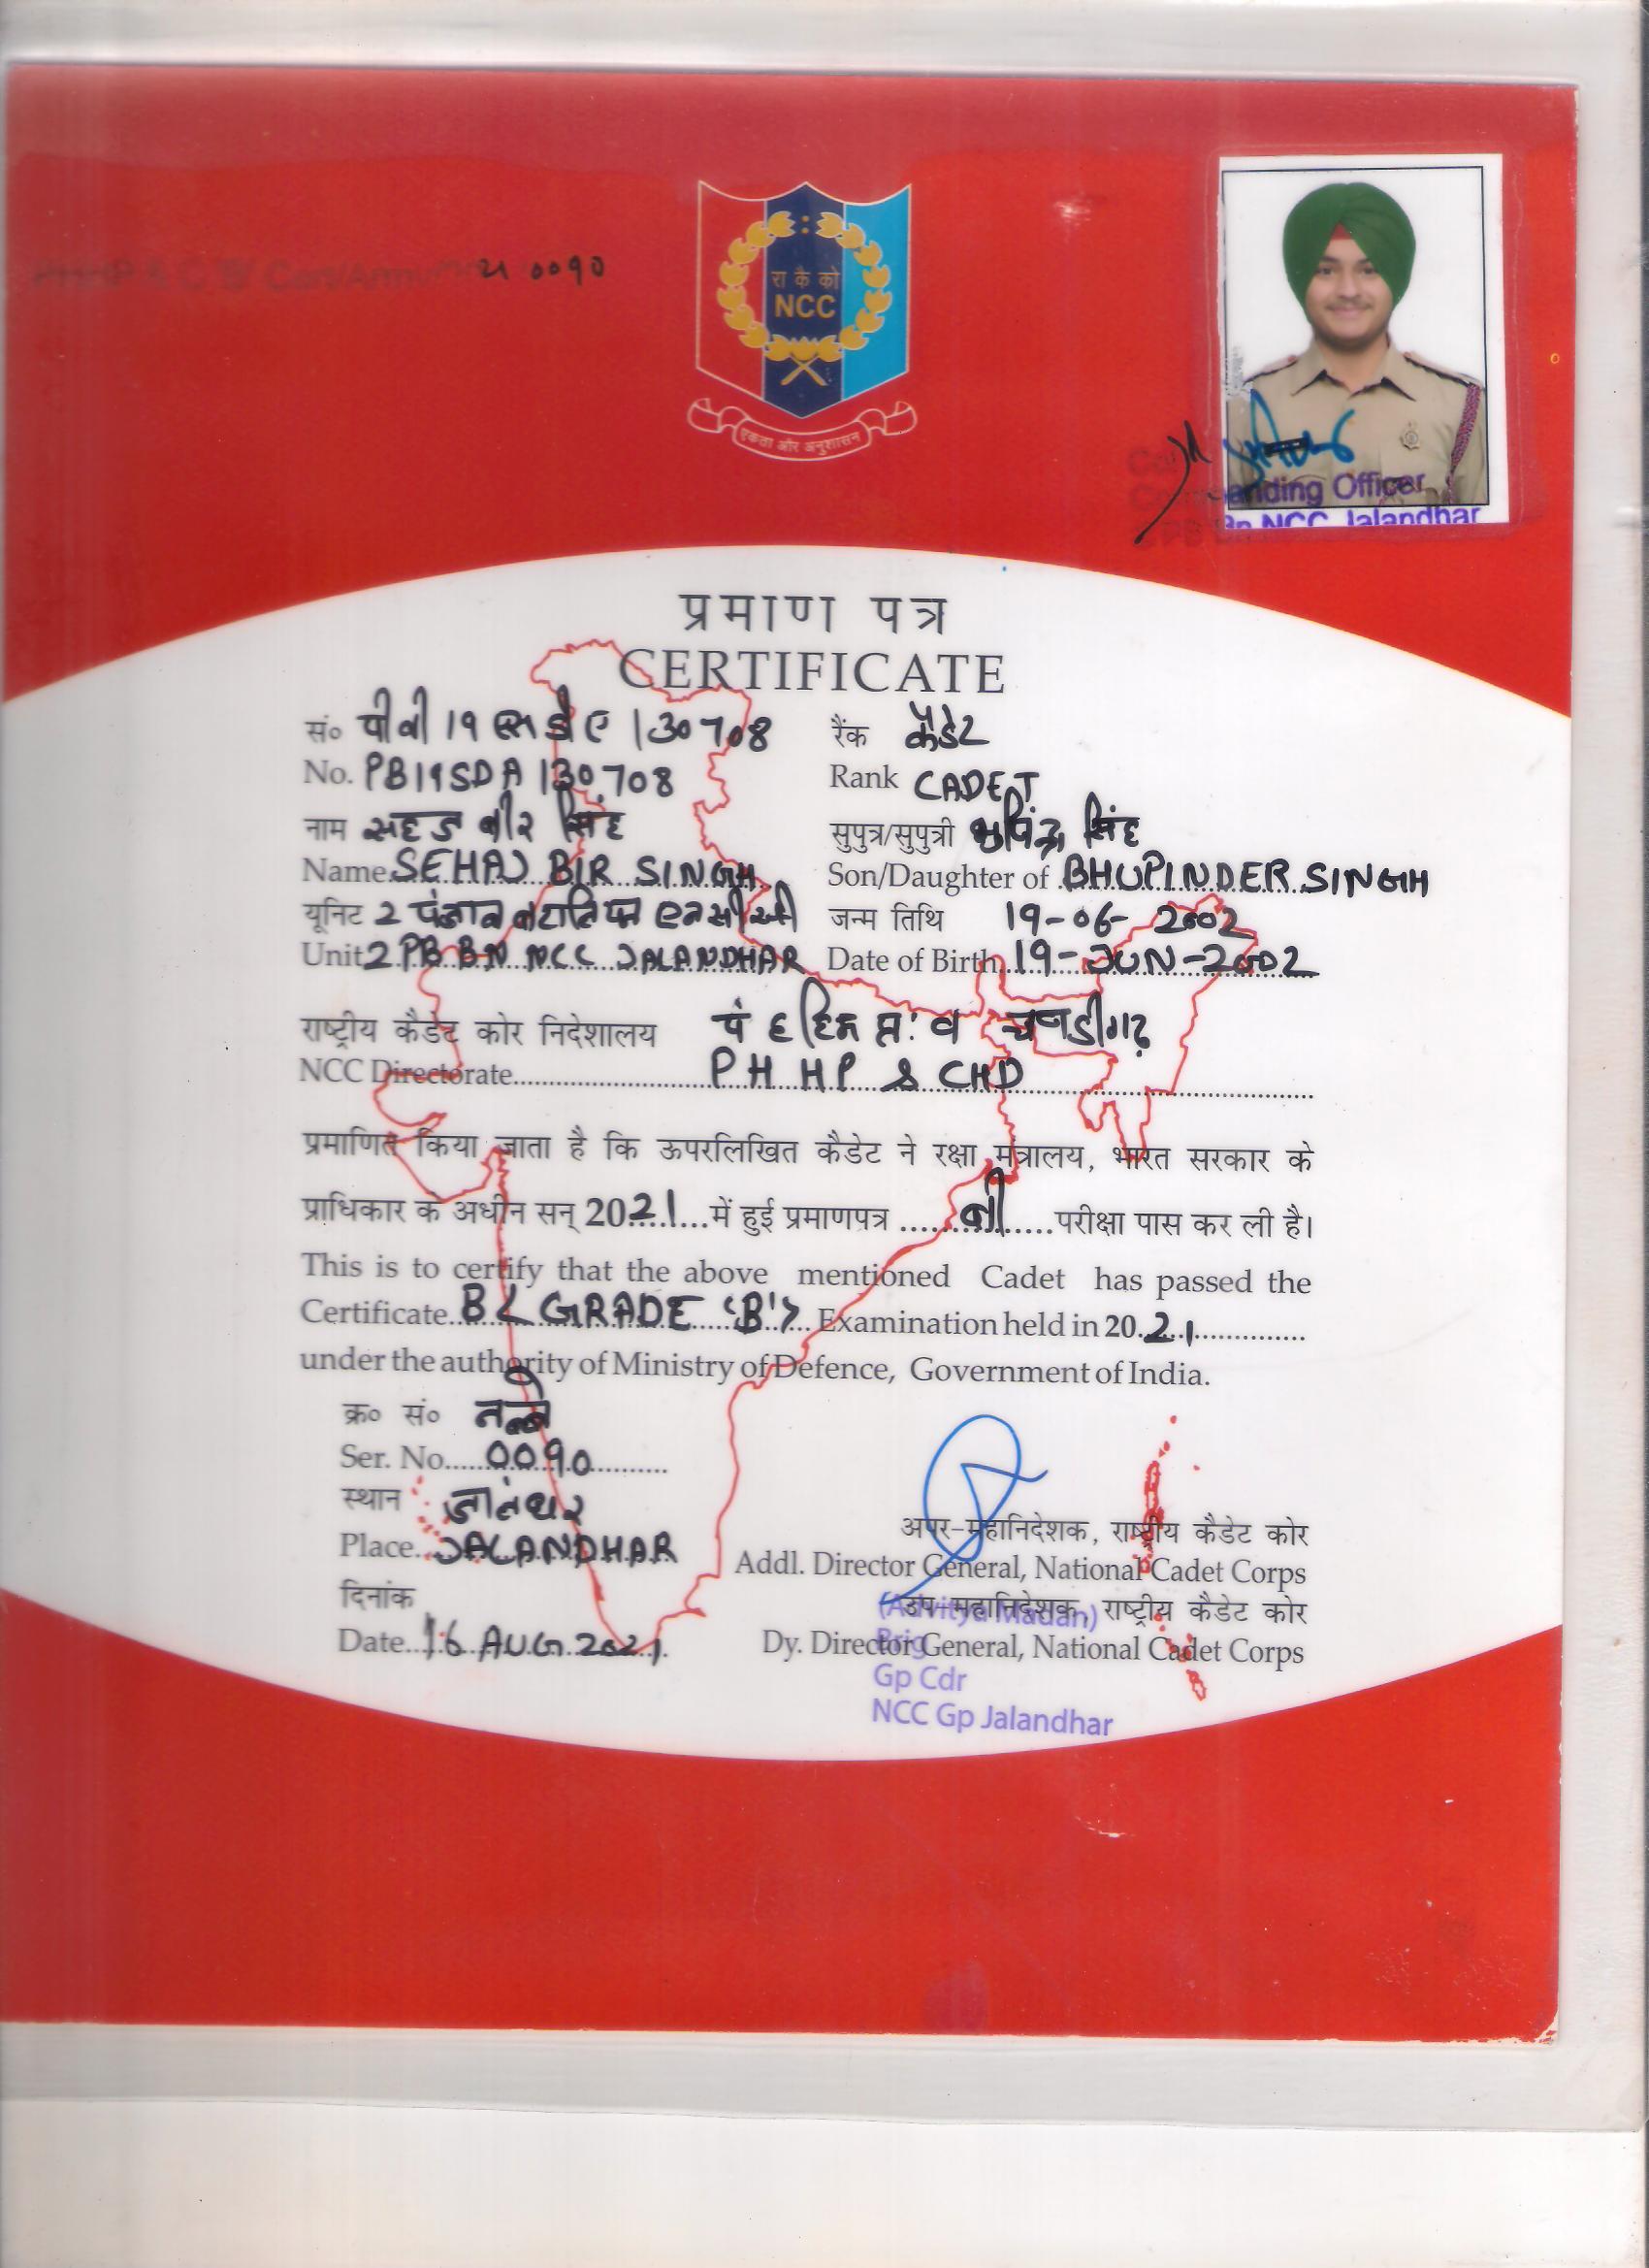 21 0090
रा कै को
NCC
एकता और अनुशासन
Commanding Officer
PB Bn NCC Jalandhar
प्रमाण पत्र
CERTIFICATE
सं० पी बी 19 एस डी ए 130708 रैंक कैडेट
No. PB19SDA130708 Rank CADET
नाम सहज बीर सिंह सुपुत्र/सुपुत्री भुपिंद्र सिंह
Name SEHAJ BIR SINGH Son/Daughter of BHUPINDER SINGH
यूनिट 2 पंजाब बटालियन एनसीसी जन्म तिथि 19-06-2002
Unit 2 PB BN NCC JALANDHAR Date of Birth 19-JUN-2002
राष्ट्रीय कैडेट कोर निदेशालय पं ह हिम प्र: व चण्डीगढ़
NCC Directorate PH HP & CHD
प्रमाणित किया जाता है कि ऊपरलिखित कैडेट ने रक्षा मंत्रालय, भारत सरकार के
प्राधिकार के अधीन सन् 2021 में हुई प्रमाणपत्र बी परीक्षा पास कर ली है।
This is to certify that the above mentioned Cadet has passed the
Certificate B < GRADE 'B'> Examination held in 2021
under the authority of Ministry of Defence, Government of India.
क्र० सं० नब्बे
Ser. No. 0090
स्थान जालंधर
Place JALANDHAR
दिनांक
Date 16 AUG 2021
अपर-महानिदेशक, राष्ट्रीय कैडेट कोर
Addl. Director General, National Cadet Corps
उप-महानिदेशक, राष्ट्रीय कैडेट कोर
Dy. Director General, National Cadet Corps
(Advitya Madan)
Brig
Gp Cdr
NCC Gp Jalandhar